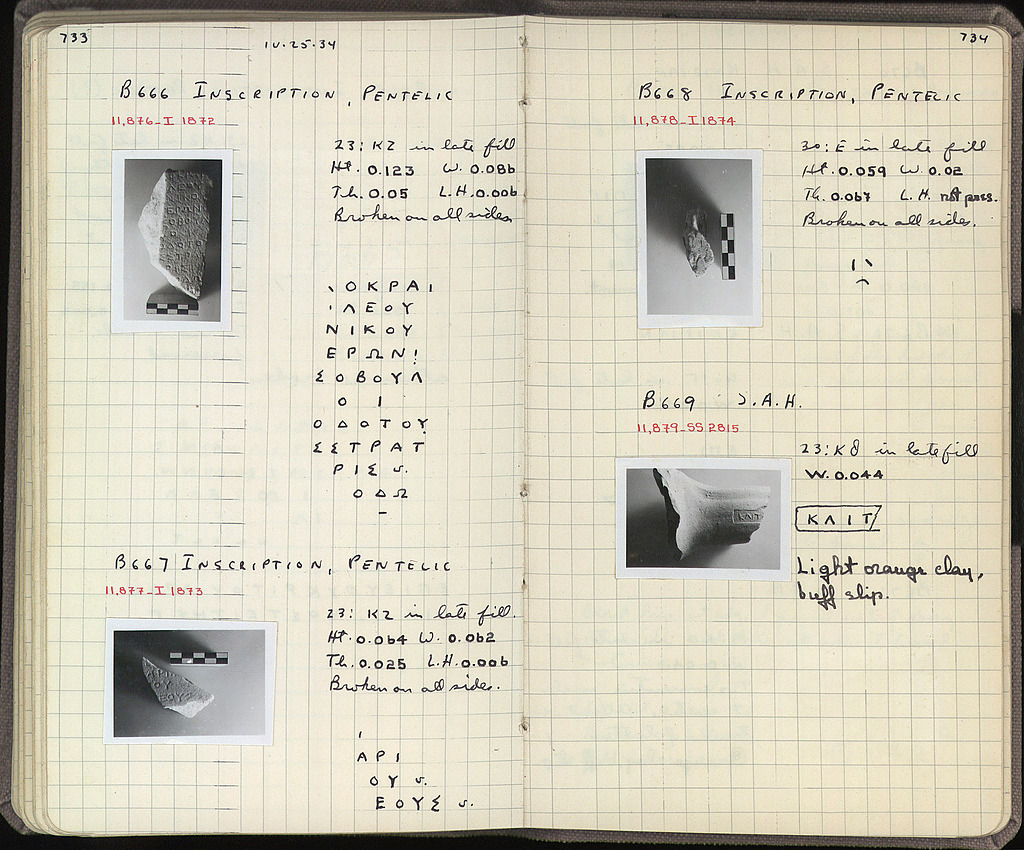 733
10.25.34
B666 INSCRIPTION, PENTELIC
11,876-I 1872
23: K2 in late fill
Ht. 0.123 W. 0.086
Th. 0.05 L.H. 0.006
Broken on all sides
\ Ο Κ Ρ Α Ι
Ι Λ Ε Ο Υ
Ν Ι Κ Ο Υ
Ε Ρ Ω Ν !
Σ Ο Β Ο Υ Λ
Ο Ι
Ο Δ Ο Τ Ο Υ
Σ Σ Τ Ρ Α Τ
Ρ Ι Σ v.
Ο Δ Ω
–
B667 INSCRIPTION, PENTELIC
11,877-I 1873
23: K2 in late fill.
Ht. 0.064 W. 0.062
Th. 0.025 L.H. 0.006
Broken on all sides.
Ι
Α Ρ Ι
Ο Υ v.
Ε Ο Υ Σ v.
734
B668 INSCRIPTION, PENTELIC
11,878-I 1874
30: E in late fill
Ht. 0.059 W. 0.02
Th. 0.067 L.H. not pres.
Broken on all sides.
B669 S.A.H.
11,879-SS 2815
23: K8 in late fill
W. 0.044
Κ Λ Ι Τ
ΚΛΙΤ
Light orange clay,
buff slip.